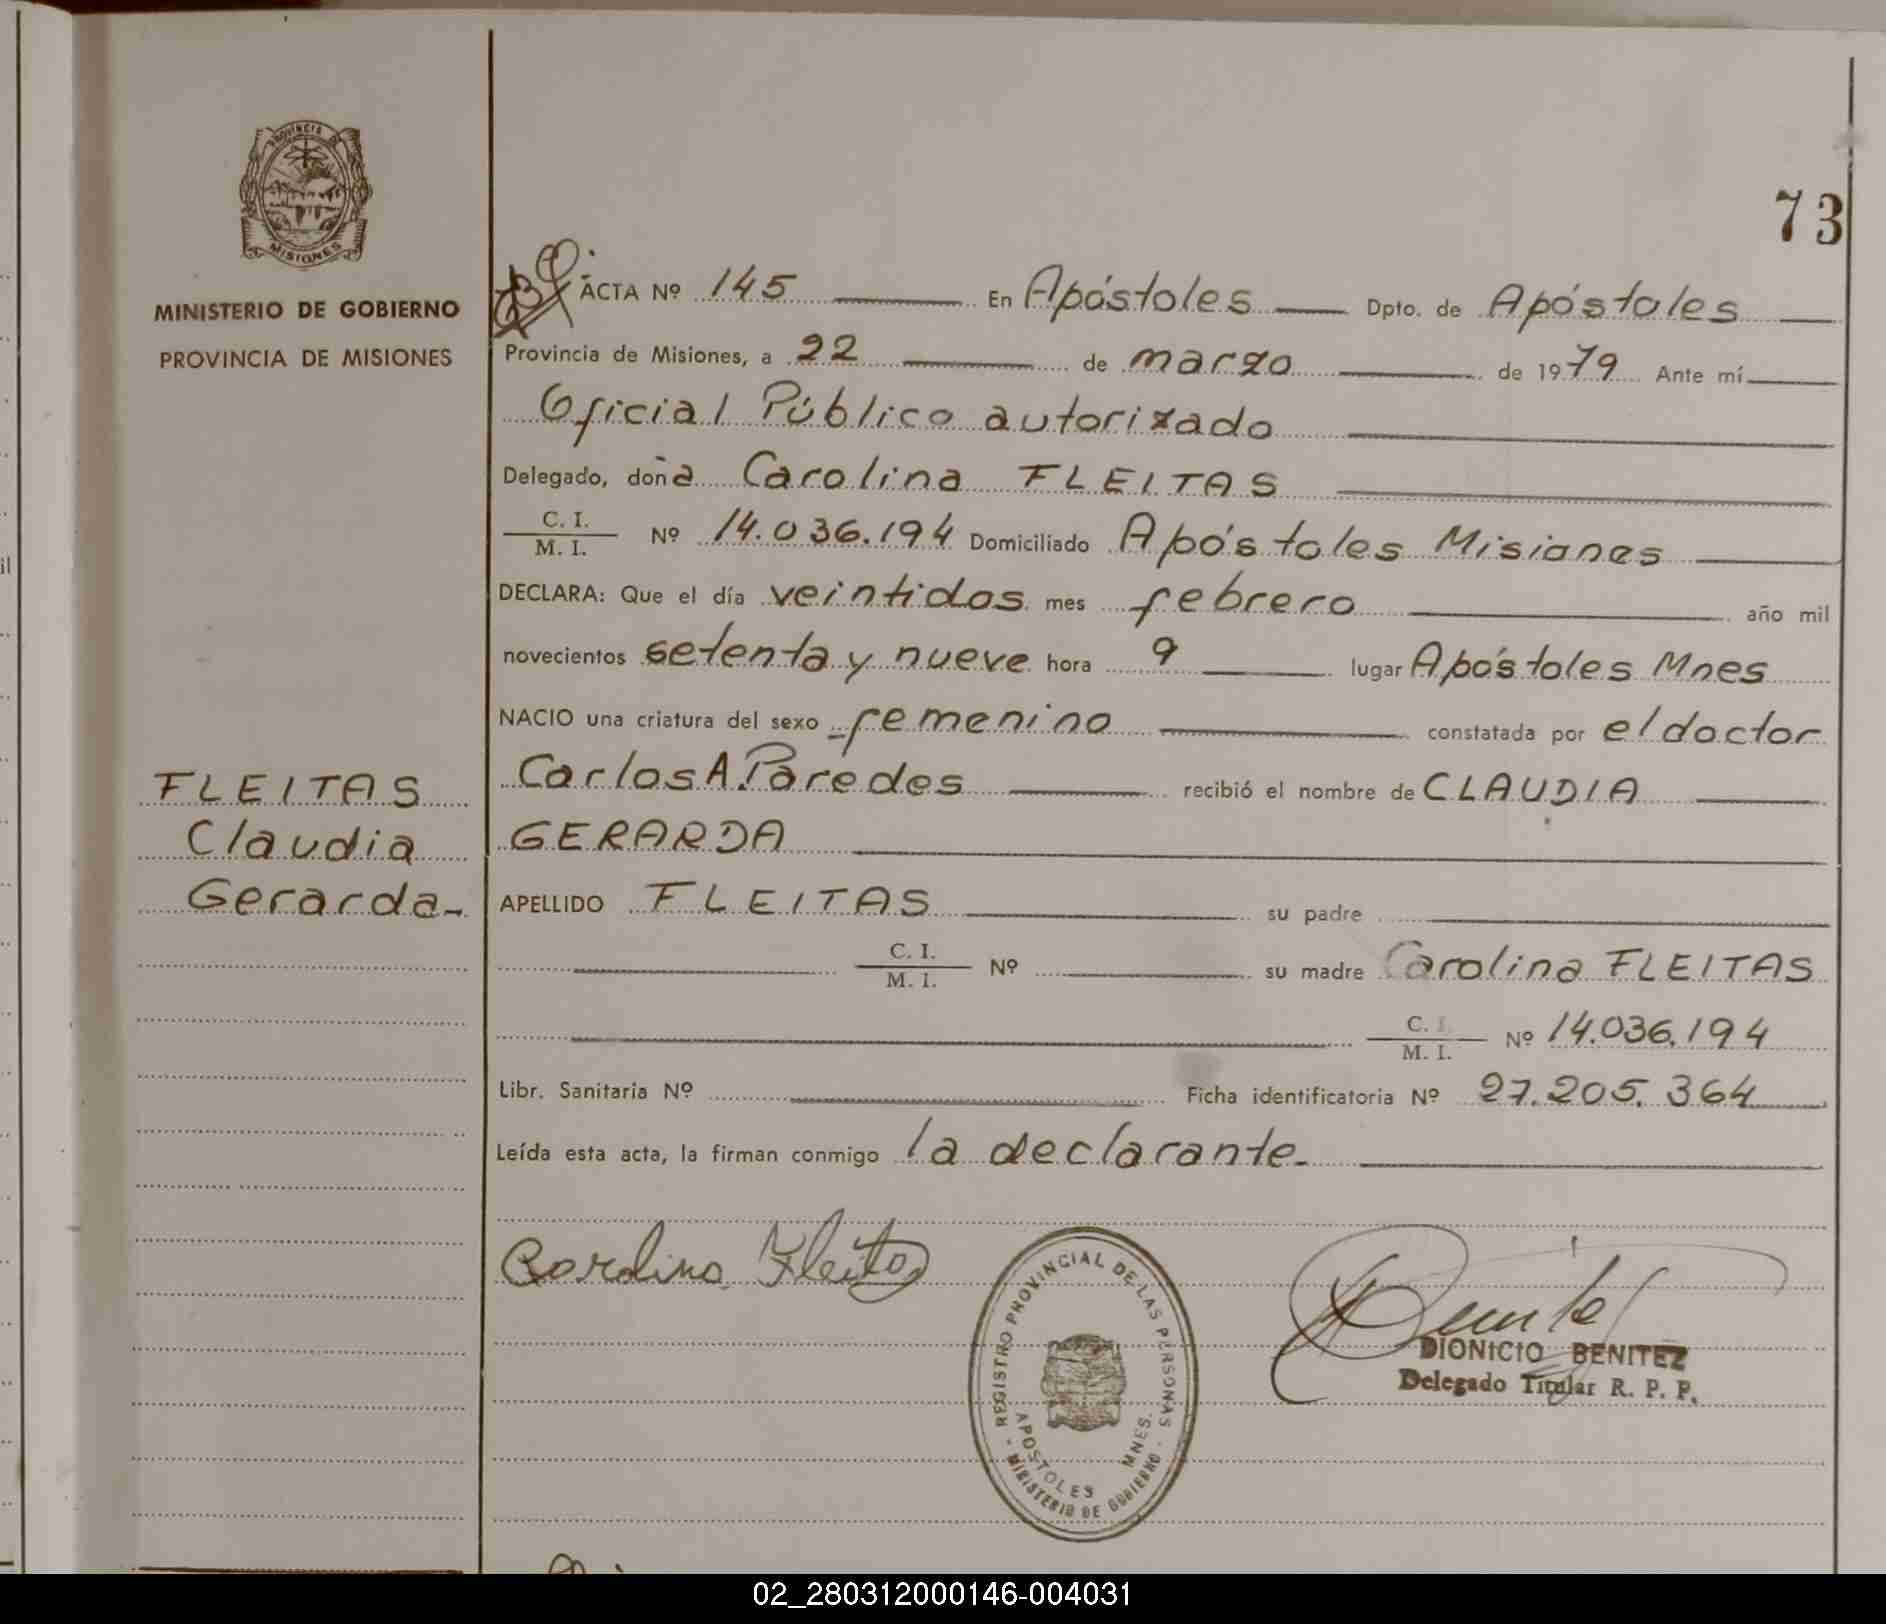 73
PROVINCIA DE
MISIONES
MINISTERIO DE GOBIERNO
PROVINCIA DE MISIONES
ACTA Nº 145 En Apóstoles Dpto. de Apóstoles
Provincia de Misiones, a 22 de marzo de 1979 Ante mí
Oficial Público autorizado
Delegado, doña Carolina FLEITAS
C. I.
M. I. Nº 14.036.194 Domiciliado Apóstoles Misiones
DECLARA: Que el día veintidos mes febrero año mil
novecientos setenta y nueve hora 9 lugar Apóstoles Mnes
NACIO una criatura del sexo femenino constatada por el doctor
Carlos A. Paredes recibió el nombre de CLAUDIA
GERARDA
FLEITAS
Claudia
Gerarda-
APELLIDO FLEITAS su padre
C. I.
M. I. Nº su madre Carolina FLEITAS
C. I.
M. I. Nº 14.036.194
Libr. Sanitaria Nº Ficha identificatoria Nº 27.205.364
Leída esta acta, la firman conmigo la declarante.
Carolina Fleitas
REGISTRO PROVINCIAL DE LAS PERSONAS
APOSTOLES MNES.
- MINISTERIO DE GOBIERNO -
DIONICIO BENITEZ
Delegado Titular R. P. P.
02_280312000146-004031